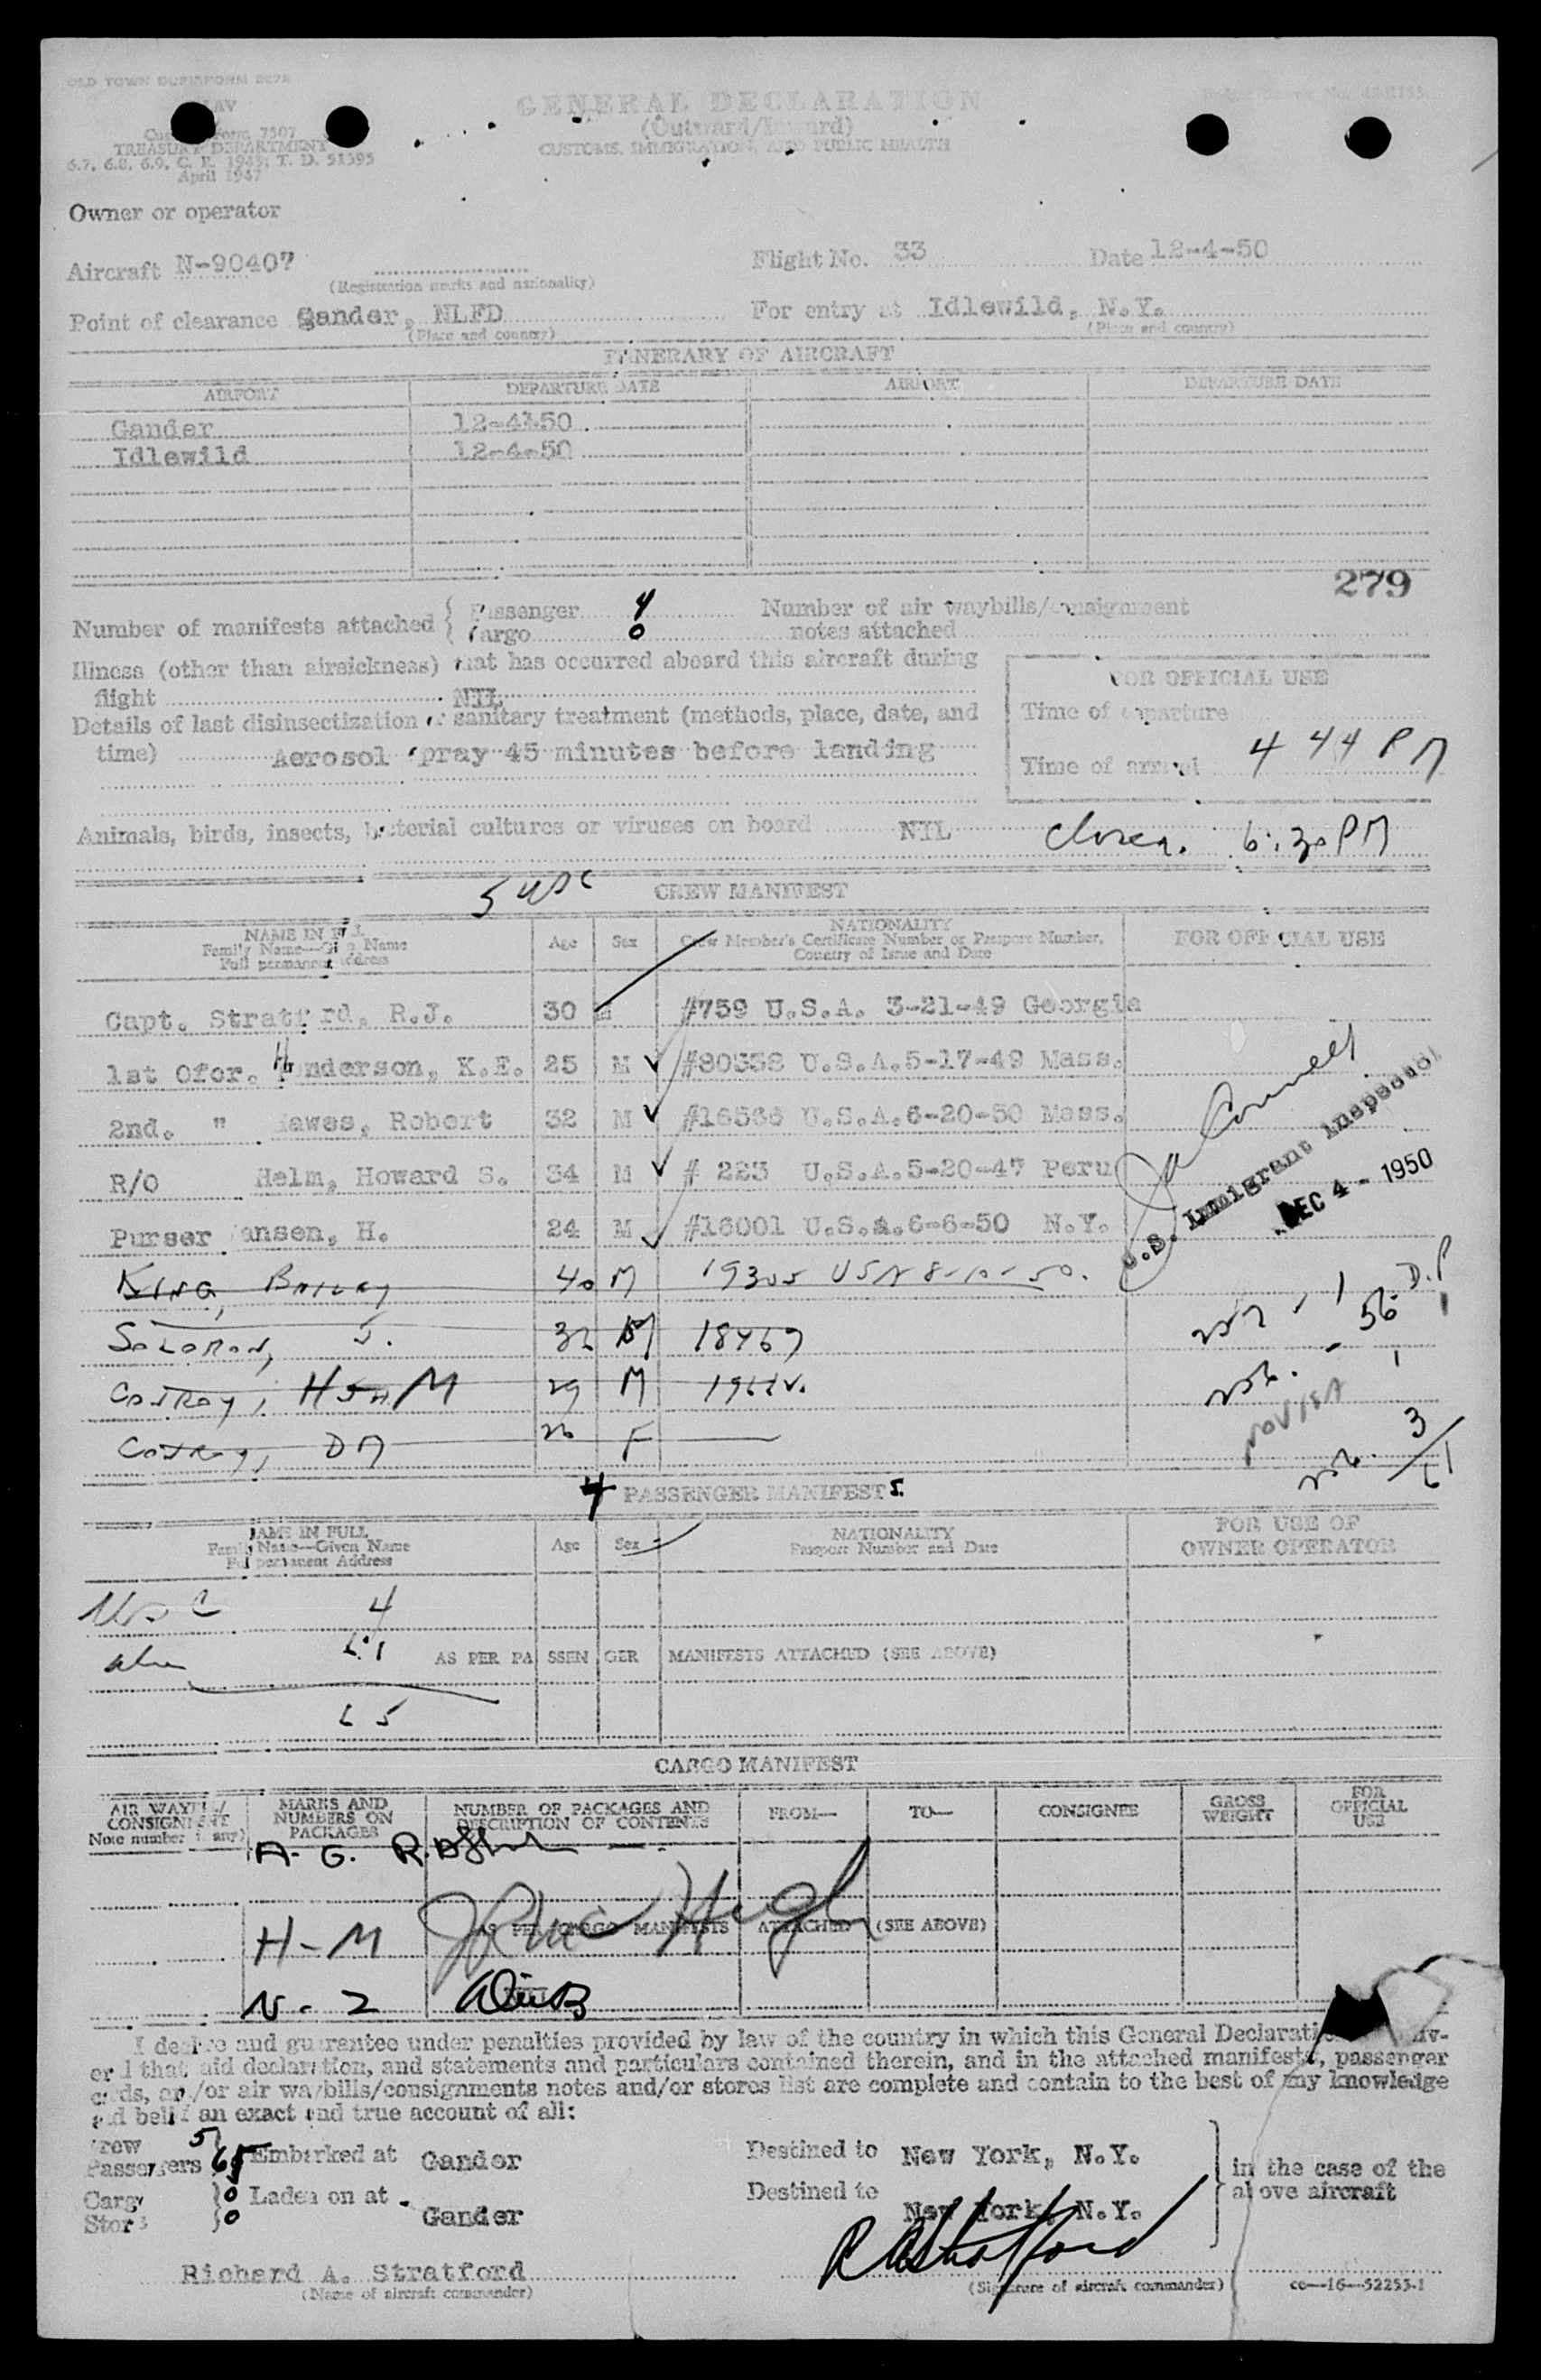 OLD TOWN DUPLIFORM 2272
GENERAL DECLARATION
Form 7507
(Outward/Inward)
TREASURY DEPARTMENT
CUSTOMS, IMMIGRATION, AND PUBLIC HEALTH
6.7, 6.8, 6.9, C. R. 1943; T. D. 51595
April 1947
Owner or operator
Aircraft N-90407 Flight No. 33 Date 12-4-50
(Registration marks and nationality)
Point of clearance Gander, NLFD For entry at Idlewild, N.Y.
(Place and country) (Place and country)
ITINERARY OF AIRCRAFT
AIRPORT DEPARTURE DATE AIRPORT DEPARTURE DATE
Gander 12-4-50
Idlewild 12-4-50
279
Number of manifests attached { Passenger 4 Number of air waybills/consignment
{ Cargo 0 notes attached
Illness (other than airsickness) that has occurred aboard this aircraft during
flight NIL
FOR OFFICIAL USE
Details of last disinsectization or sanitary treatment (methods, place, date, and
time) Aerosol spray 45 minutes before landing
Time of departure
Time of arrival 4 44 PM
Animals, birds, insects, bacterial cultures or viruses on board NIL
6:30 PM
5 USC CREW MANIFEST
NAME IN FULL
Family Name—Given Name
Full permanent address
Age Sex
NATIONALITY
Crew Member's Certificate Number or Passport Number,
Country of Issue and Date
FOR OFFICIAL USE
Capt. Stratford, R.J. 30 M #759 U.S.A. 3-21-49 Georgia
1st Ofcr. Henderson, K.E. 25 M #80338 U.S.A.5-17-49 Mass.
2nd. " Hawes, Robert 32 M #16566 U.S.A.6-20-50 Mass.
R/O Helm, Howard S. 34 M # 223 U.S.A.5-20-47 Peru
Purser Jansen, H. 24 M #16001 U.S.A.6-6-50 N.Y.
U.S. Immigrant Inspector
DEC 4 - 1950
King, 40 M 19305 USA 8-10-50.
J. M 18467
29 M
DM F
4 PASSENGER MANIFESTS
NAME IN FULL
Family Name—Given Name
Full permanent Address
Age Sex
NATIONALITY
Passport Number and Date
FOR USE OF
OWNER OPERATOR
USC 4
61
AS PER PASSENGER MANIFESTS ATTACHED (SEE ABOVE)
65
CARGO MANIFEST
AIR WAYBILL/
CONSIGNMENT
Note number (if any)
MARKS AND
NUMBERS ON
PACKAGES
NUMBER OF PACKAGES AND
DESCRIPTION OF CONTENTS
FROM— TO— CONSIGNEE
GROSS
WEIGHT
FOR
OFFICIAL
USE
A. G.
AS PER CARGO MANIFESTS ATTACHED (SEE ABOVE)
H-M
N-Z
I declare and guarantee under penalties provided by law of the country in which this General Declaration
that said declaration, and statements and particulars contained therein, and in the attached manifests, passenger
cards, and/or air waybills/consignments notes and/or stores list are complete and contain to the best of my knowledge
and belief an exact and true account of all:
Crew 5
Passengers 65 } Embarked at Gander Destined to New York, N.Y.
Cargo 0
Stores 0 } Laden on at Gander Destined to New York, N.Y.
in the case of the
above aircraft
Richard A. Stratford RA Stratford
(Name of aircraft commander) (Signature of aircraft commander) co—16—52255-1